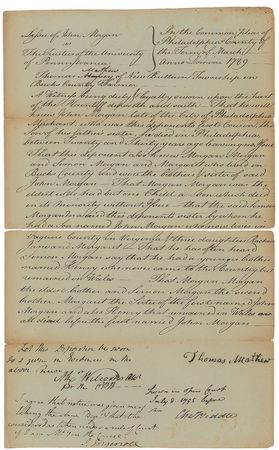 Lessee of John Morgan
vs
The Trustees of the University
of Pennsylvania
In the Common pleas of
Philadelphia County of
the Term of March
Anno Domini 1789
Mathew
Thomas of New Brittain Township in
Bucks County Farmer
A Witness being duly & legally sworn upon the part
of the Plaintiff deposeth and saith That he well
knew John Morgan late of the City of Philadelphia
who was this deponents and cousin the
Son of his fathers sister, he died in Philadelphia
between Twenty and Thirty years ago leaving no Issue
That this deponent also knew Morgan Morgan
and Simon Morgan and Margaret who lived in
Bucks County and were the brothers & sister of said
John Morgan That Morgan was the
eldest who had but one Child a Son which died
in its Minority without Issue that the said Simon
Morgan married this deponents sister by whom he
had a Son named John Morgan who now lives in
County in & three daughters Rachel
Jane and Margaret That he has often heard
Simon Morgan say that he had a younger brother
named Henry who never came to the Country but
remained in Wales That Morgan Morgan
the eldest brother, and Simon Morgan the second
brother Margaret the Sister of the first named John
Morgan and also Henry that remained in Wales are
all dead before the first named John Morgan
Let this Deposition be worn
to & given in Evidence in the
above Cause
Thomas Mathew
Sworn in open Court
July 8 1795 before
me
Cha Biddle
I agree that notice was given me of
taking the above Depn & that the
considered as taken under a rule of Court